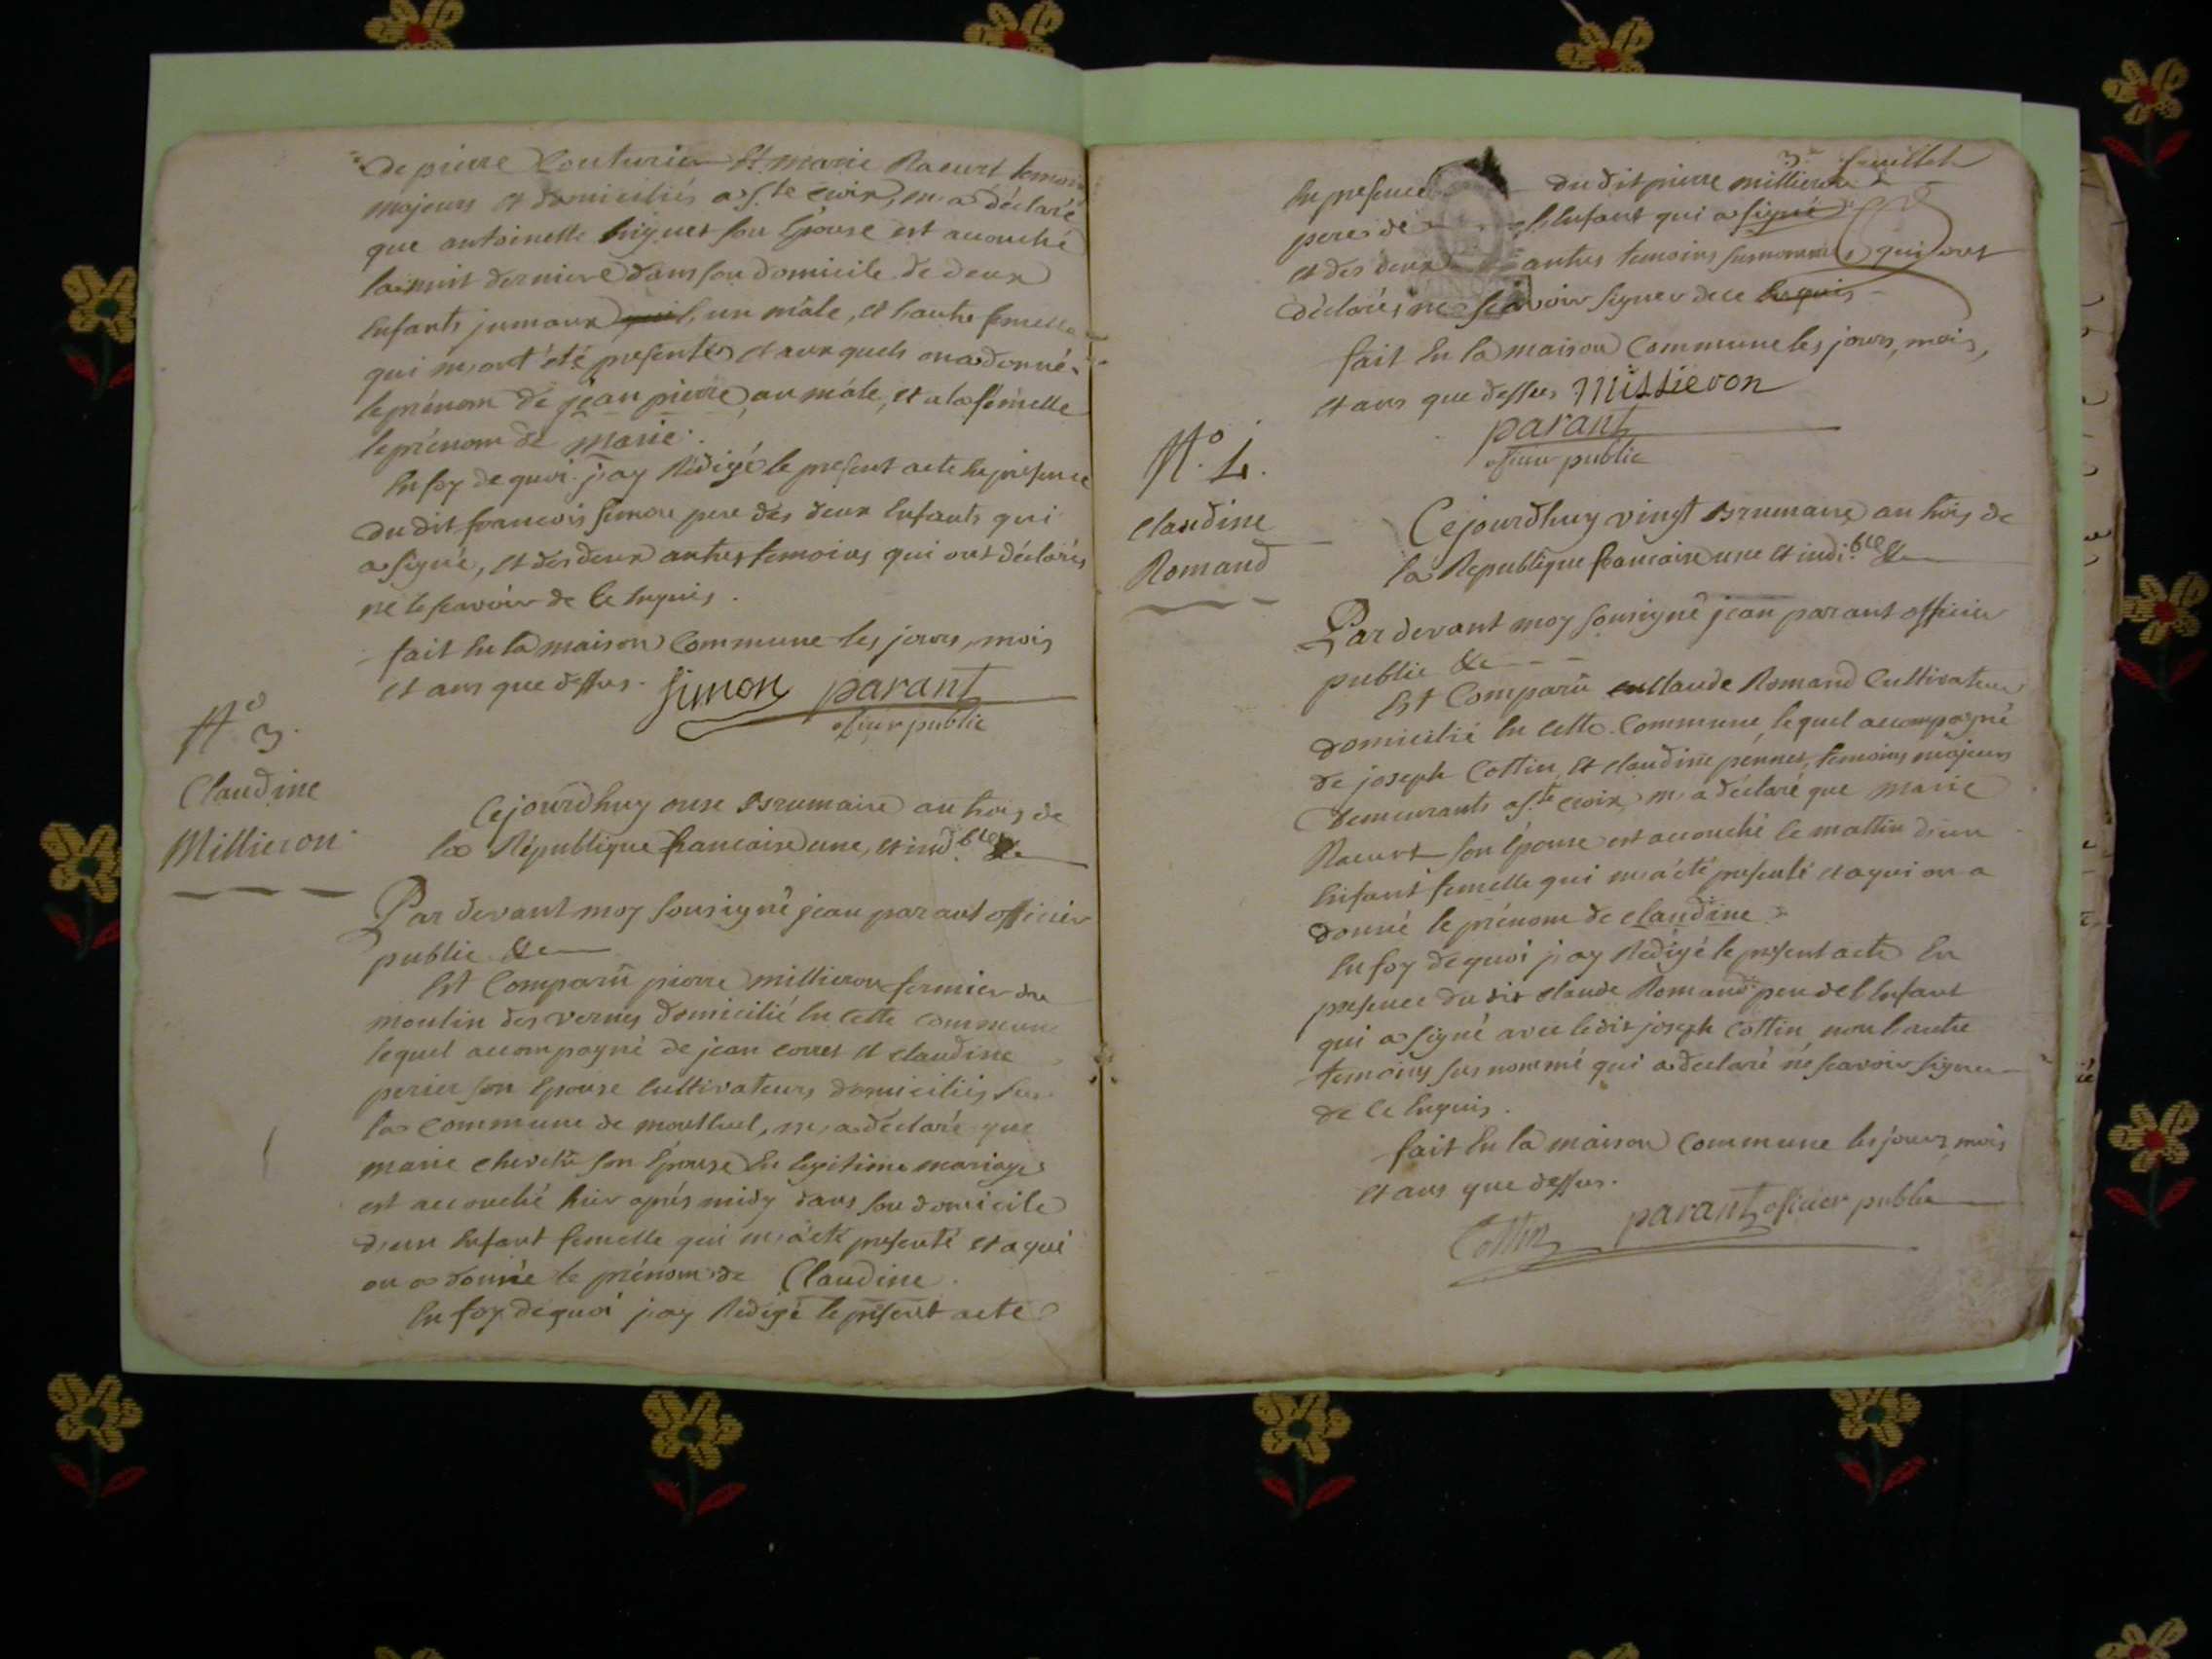 de pierre Couturier Et marie Racurt temoins
majeurs et domiciliés a Ste croix, m'a déclaré
que antoinette huguet son Epouse est accouché
la nuit derniere dans son domicile de deux
Enfants jumaux l'un mâle, et l'autre femelle
qui m'ont été presentés et aux quels on a donné
le prénom de jean pierre au mâle, et a la femelle
le prénom de marie.
En foy de quoi j'ay Rédigé le present acte En presence
du dit francois simon pere des deux Enfants qui
a signé, et des deux autres temoins qui ont déclarés
ne le scavoir de ce Enquis.
fait En la maison Commune les jours, mois
et ans que dessus. simon parant
officier public
N° 3.
Claudine
Millieron
Cejourdhuy onse Brumaire an trois de
la République francaise une, et ind.ble &c
Par devant moy sousigné jean parant officier
public &c
Est Comparû pierre millieron fermier du
moulin des vernes domicilié En cette commune
lequel accompagné de jean corret et claudine
perier son Epouse Cultivateurs domiciliés sur
la Commune de montluel, m'a déclaré que
marie son Epouse En legitime mariage
est accouché hier après midy dans son domicile
d'un Enfant femelle qui m'a été presenté et a qui
on a donnée le prénom de Claudine.
En foy de quoi j'ay Rédigé le présent acte
3e feuillet
En presence du dit pierre millieron
pere de l'Enfant qui a signé
et des deux autres temoins susnommés qui ont
déclarés ne scavoir signer de ce Enquis
fait En la maison Commune les jours, mois,
et ans que dessus Millieron
parant
officier public
N° 4.
claudine
Romand
Cejourdhuy vingt Brumaire an trois de
la Republique francaise une et indi.ble &c
Par devant moy sousigné jean parant officier
public &c
Est Comparû Claude Romand Cultivateur
domicilié En cette Commune, lequel accompagné
de joseph Cottin, Et claudine pennet, temoins majeurs
demeurants a Ste croix, m'a déclaré que marie
Racurt son Epouse est accouché le mattin d'un
Enfant femelle qui m'a été presenté et a qui on a
donné le prénom de claudine
En foy de quoi j'ay Rédigé le present acte En
presence du dit claude Romand pere de l'Enfant
qui a signé avec ledit joseph Cottin non l'autre
temoins sus nommé qui a declaré ne scavoir signer
de ce Enquis.
fait En la maison Commune les jours mois
et ans que dessus.
Cottin parant officier public